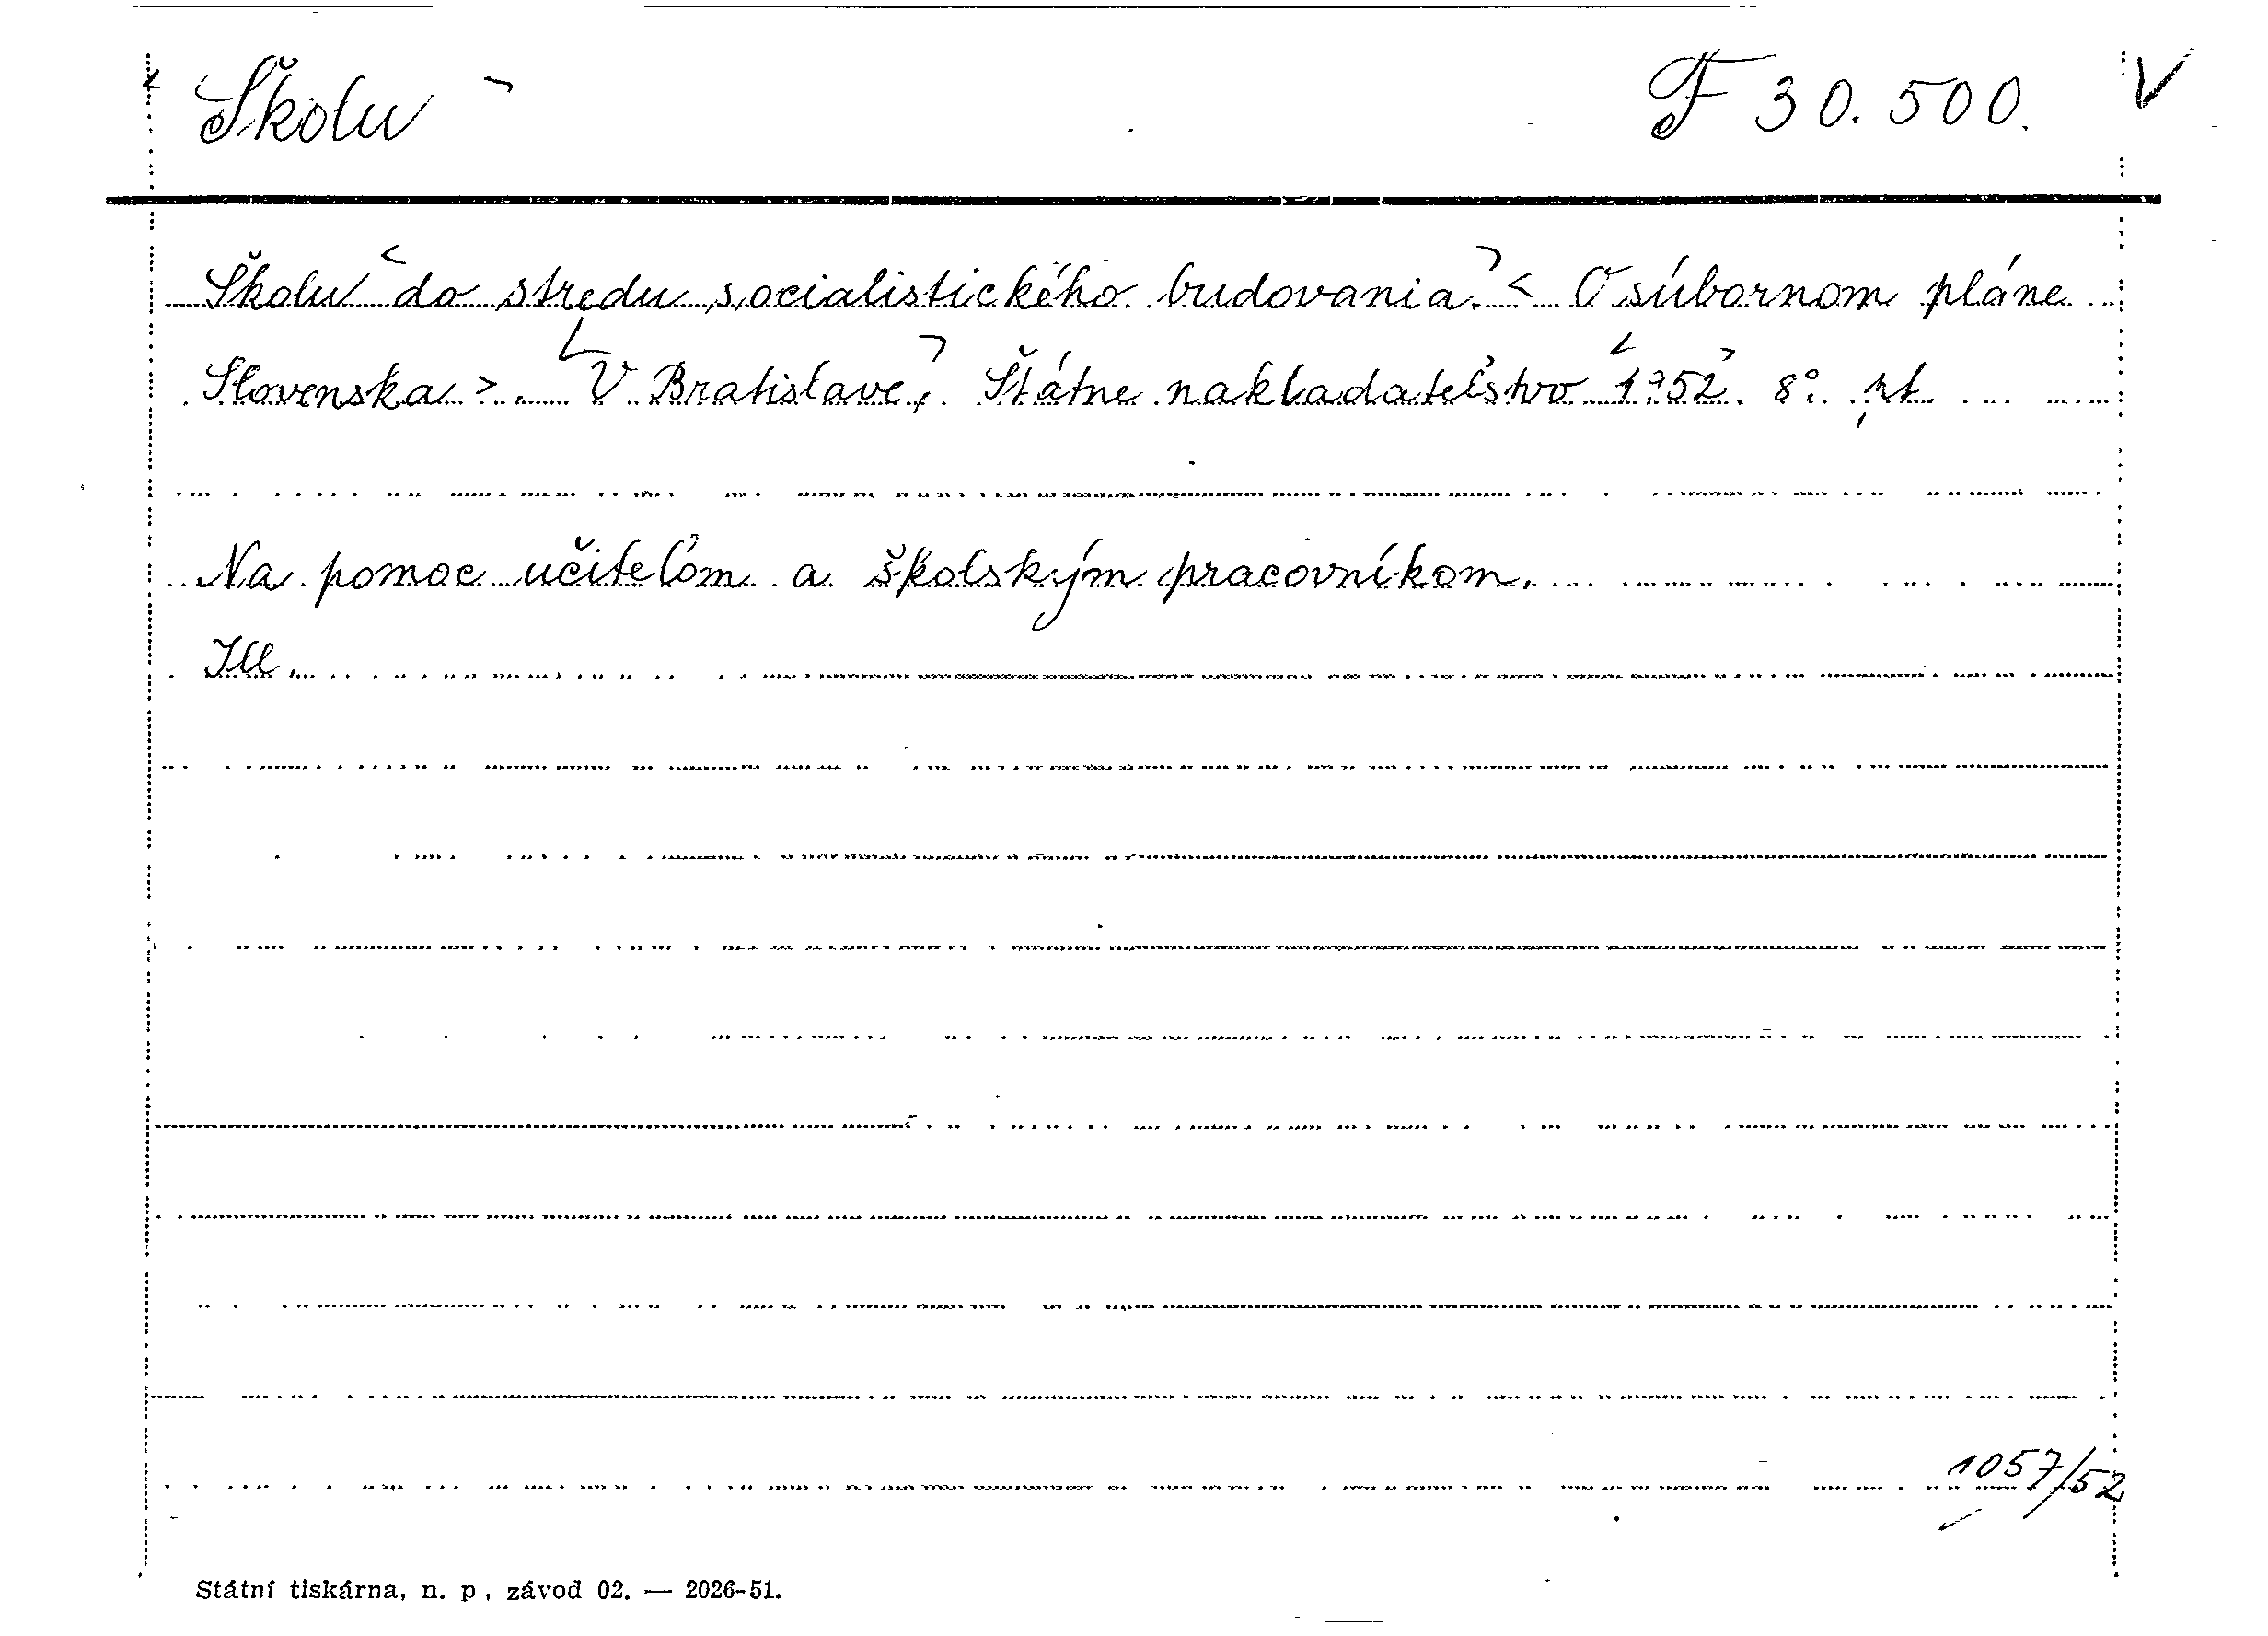 Školu F 30.500. V
Školu do stredu socialistického budovania. < O súbornom pláne
Slovenska >. V Bratislave, Štátne nakladateľstvo 1952. 8°.
Na pomoc učiteľom a školským pracovníkom.
Ill.
1057/52
Státní tiskárna, n. p., závod 02. — 2026-51.